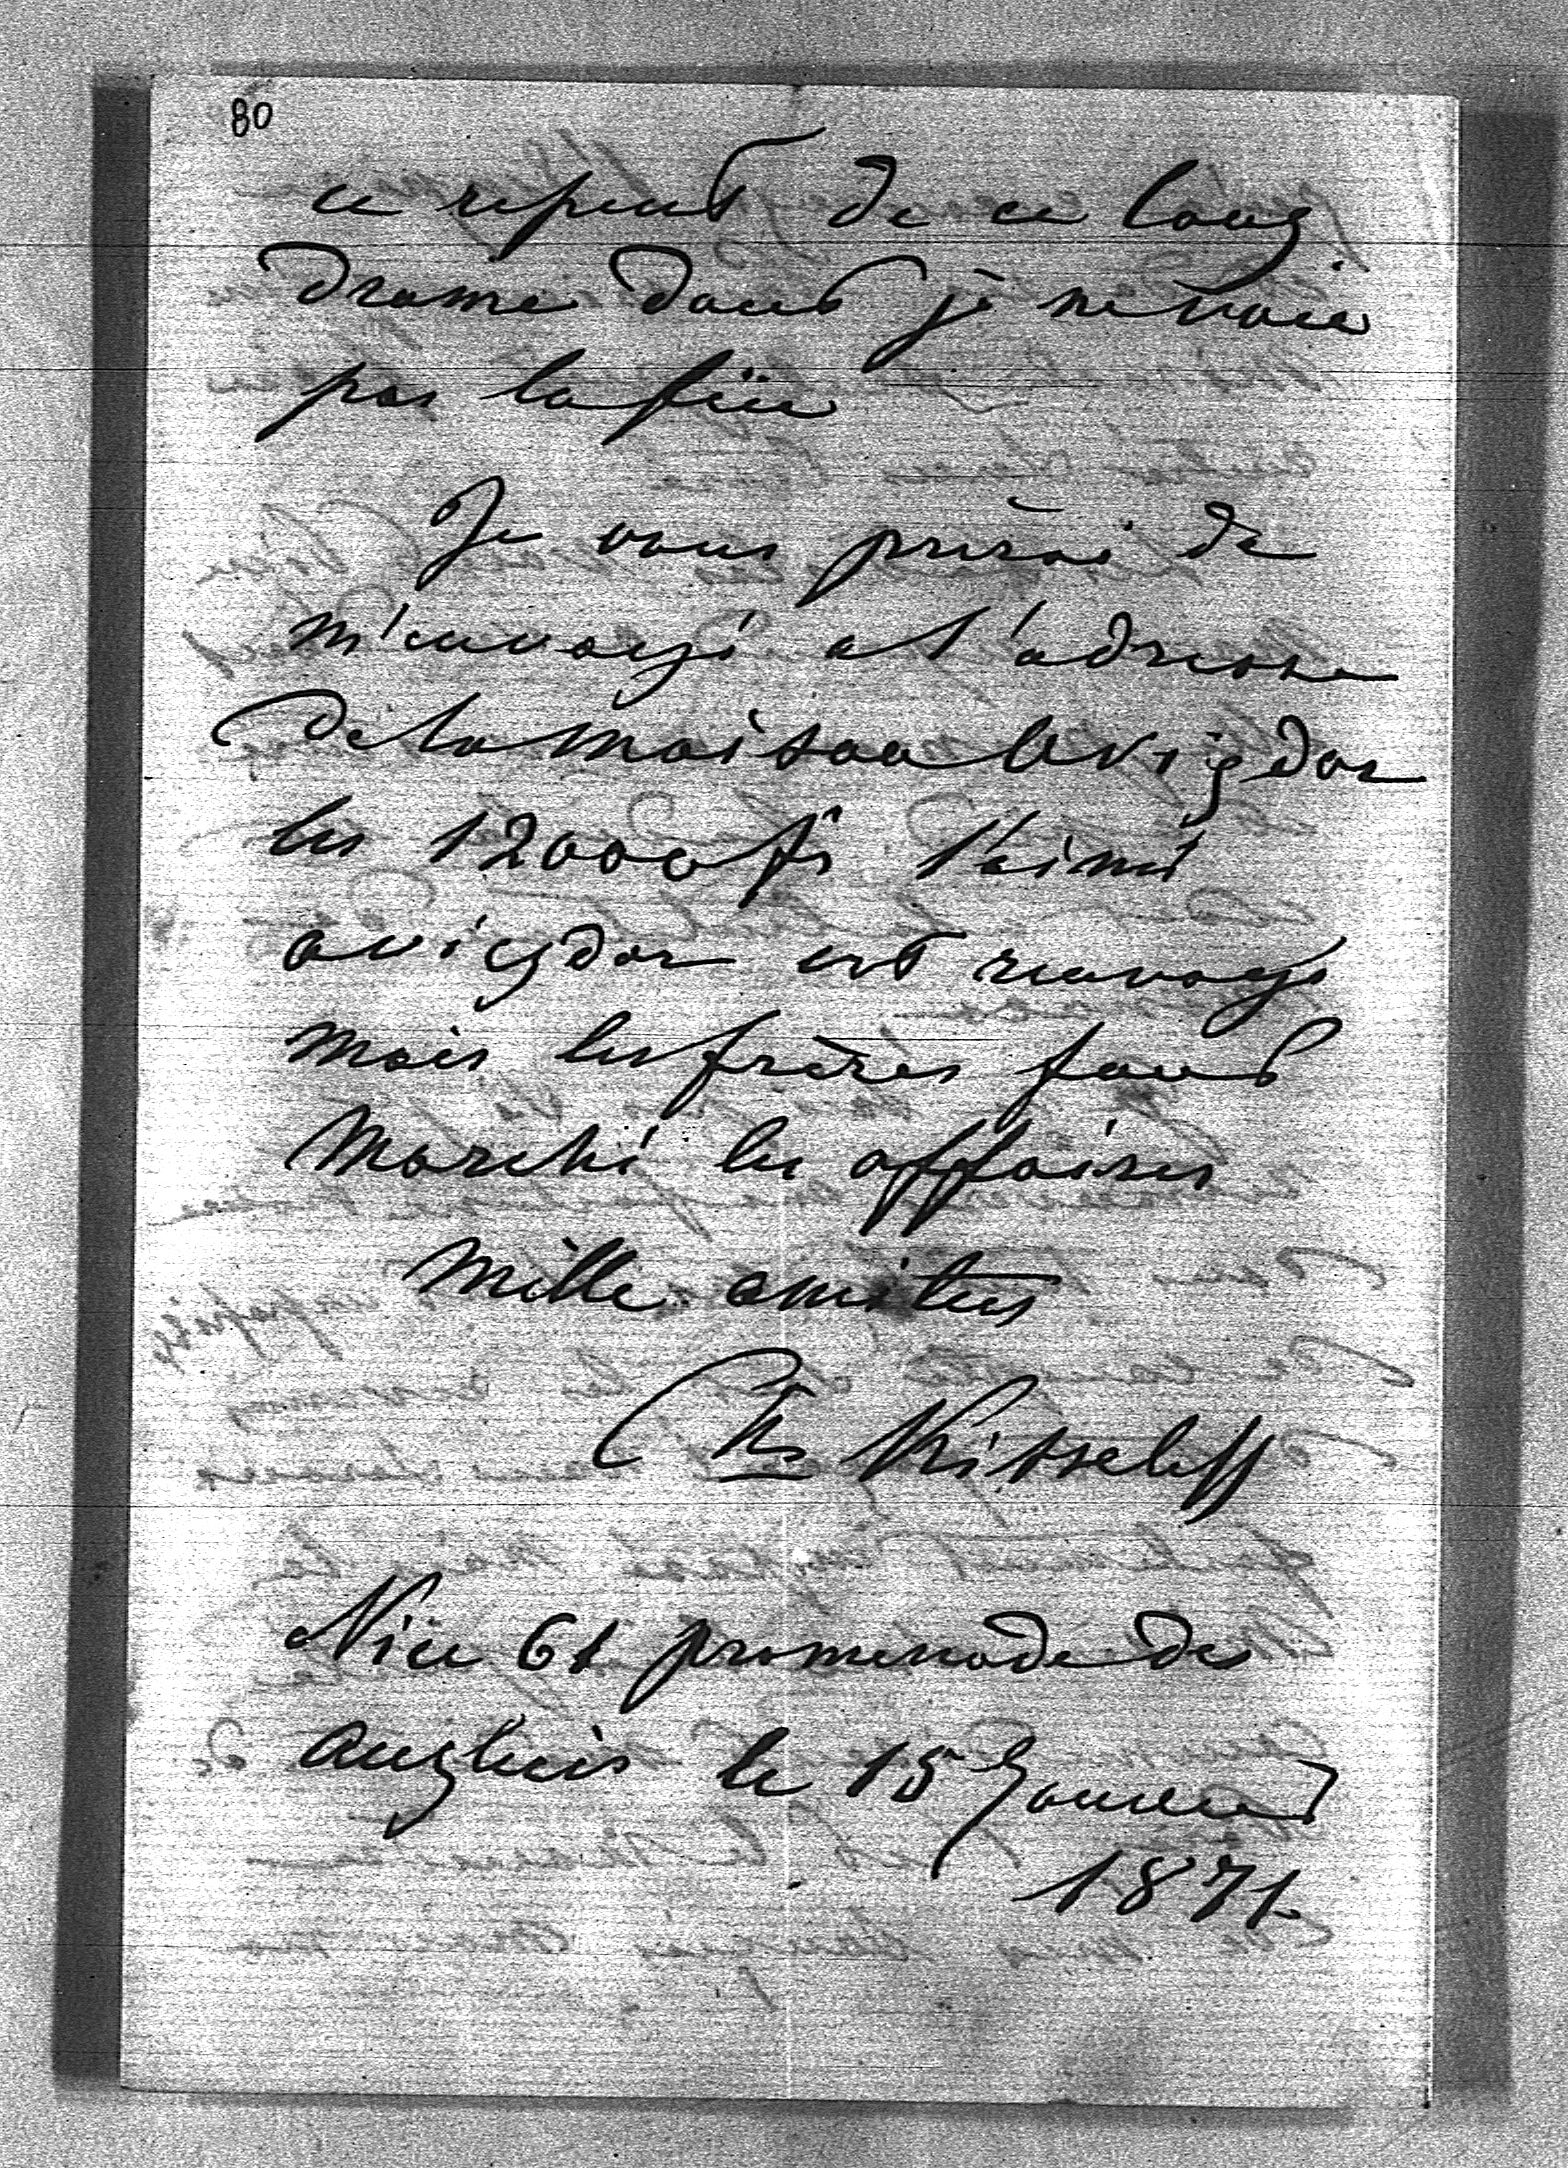 80
ce repent de ce long
drame dont je ne voie
pas la fin
Je vous prirai de
m'envoyé a l'adresse
de la maison Avigdor
les 12000 fr l'ainé
avigdor est renvoyé
mais les frères font
marché les affaires
mille amities
Kisseleff
Nice 61 promenade des
anglais le 15 Janvier
1871